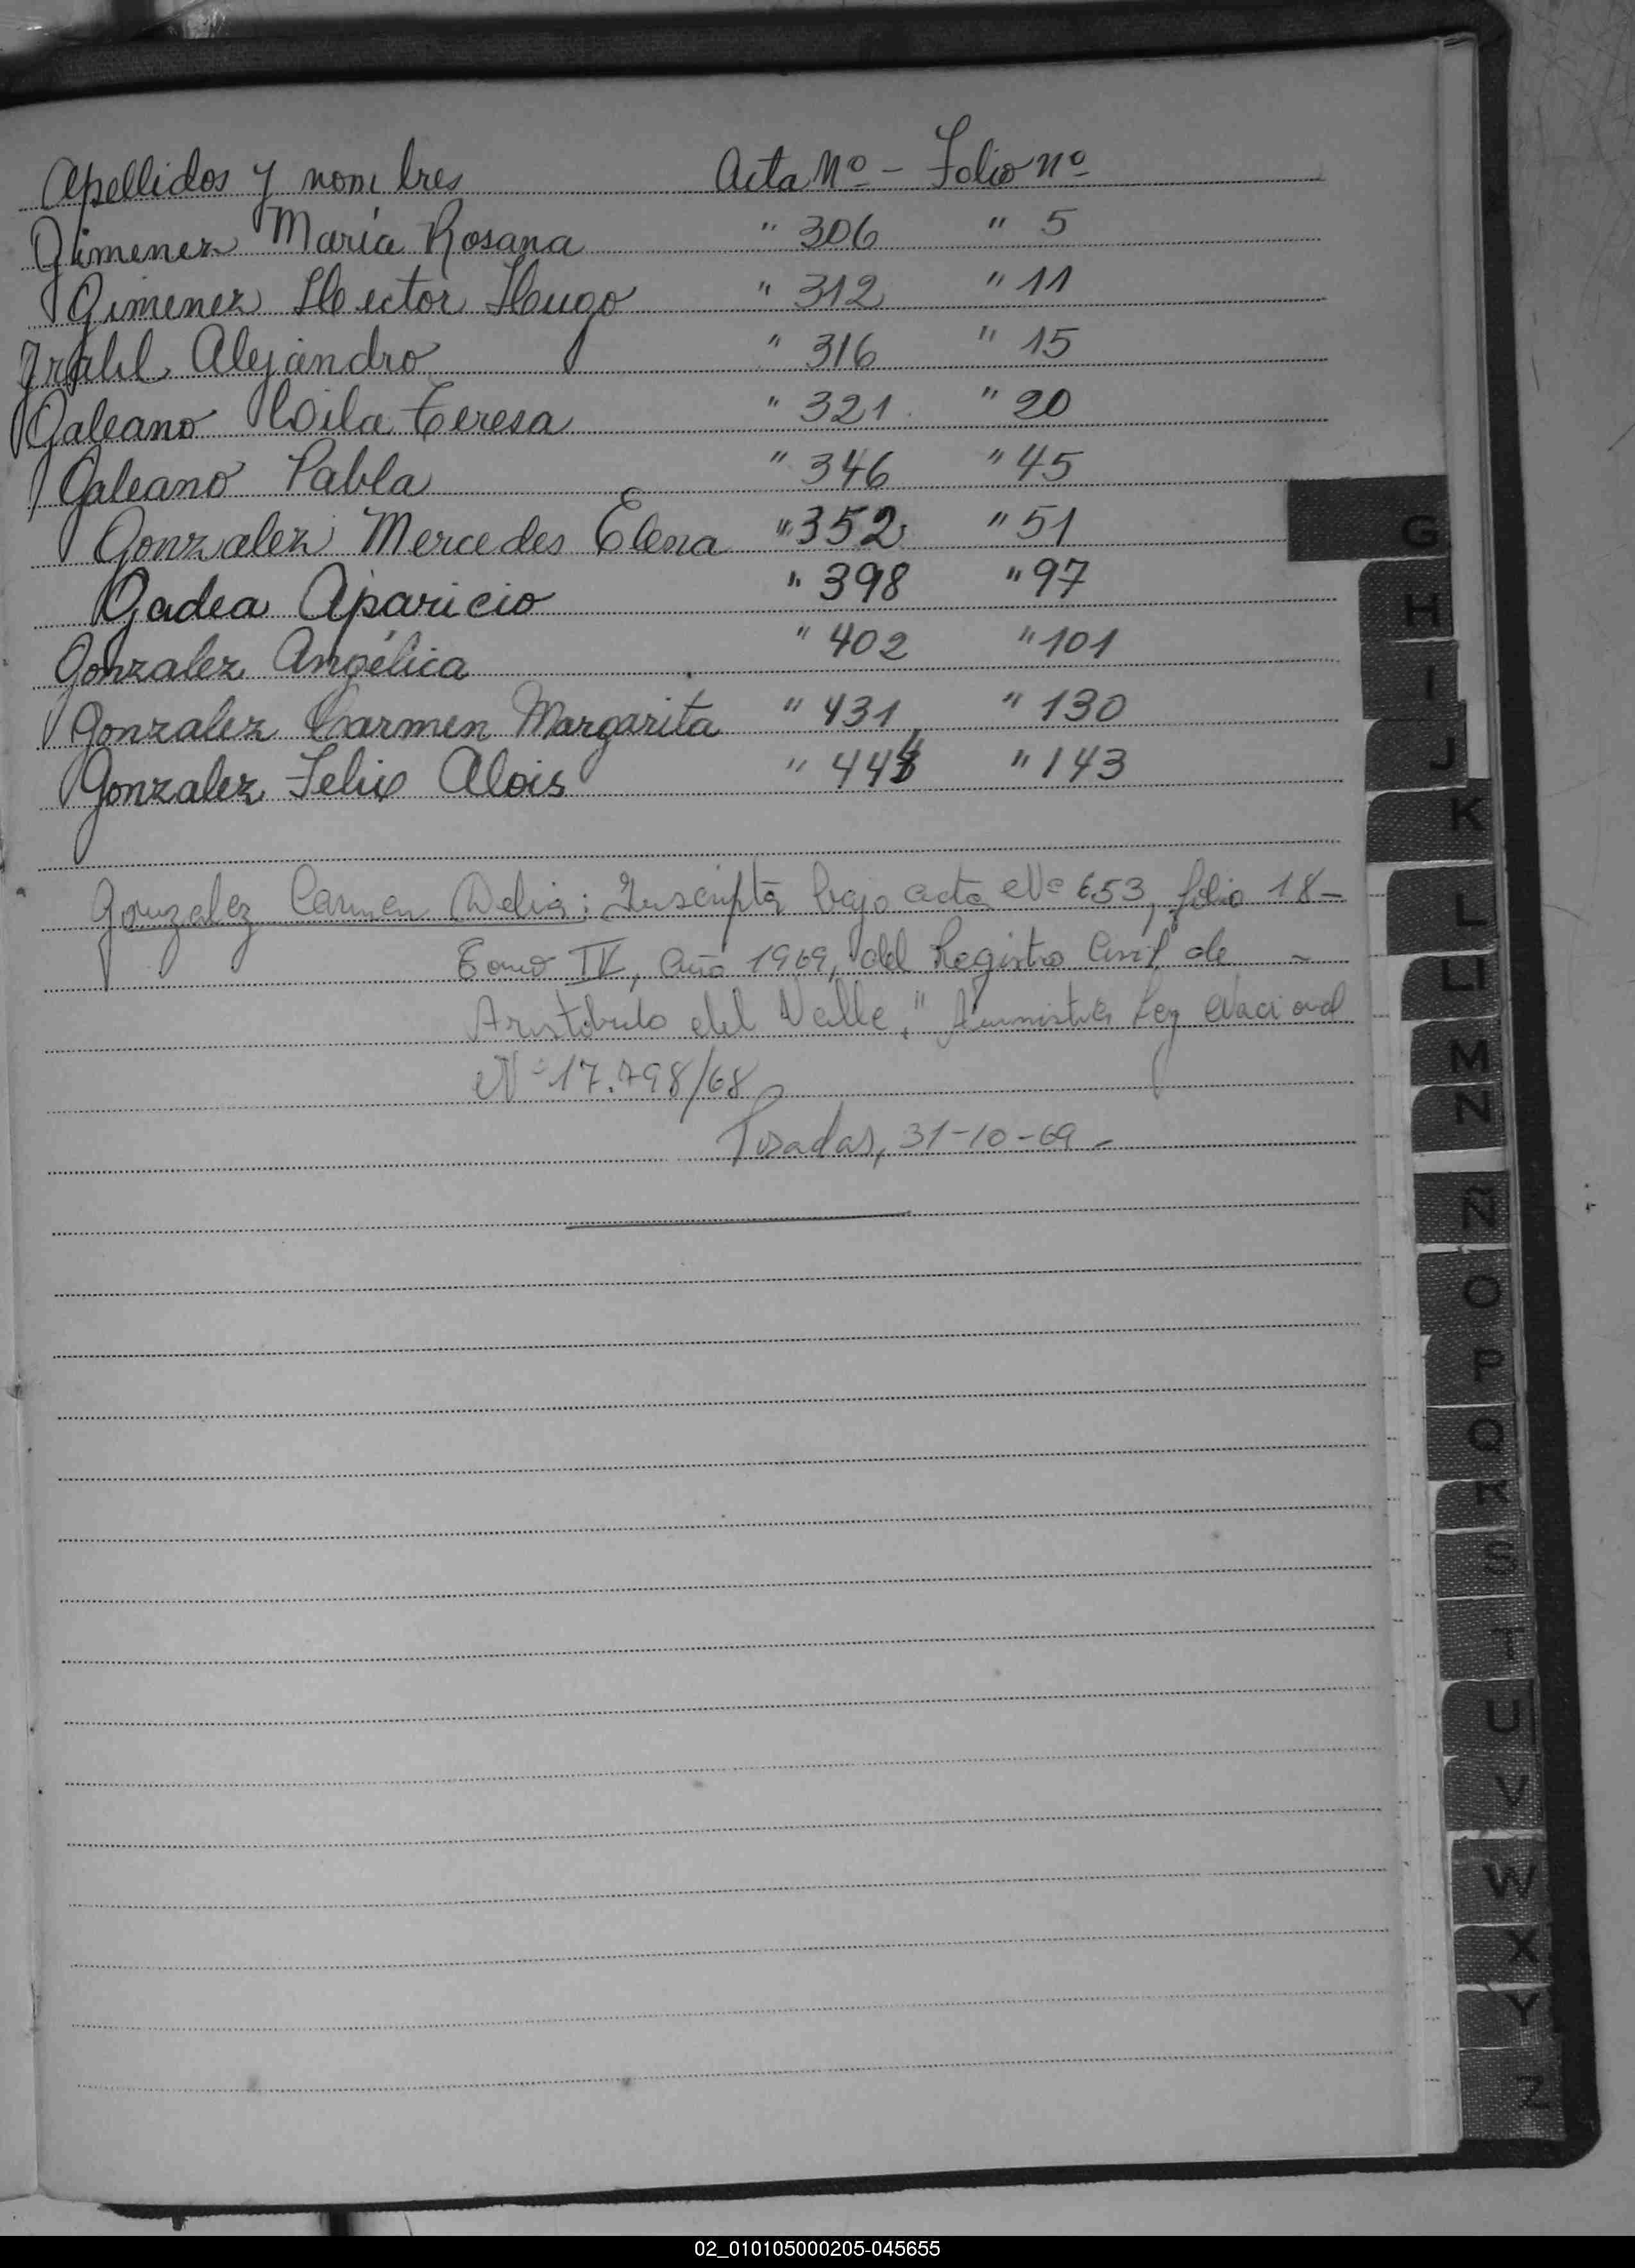 Apellidos y nombres Acta Nº - Folio nº
Gimenez María Rosana " 306 " 5
Gimenez Hector Hugo " 312 " 11
Alejandro " 316 " 15
Galeano Teresa " 321 " 20
Galeano Pabla " 346 " 45
Gonzalez Mercedes Elena " 352 " 51
Gadea Aparicio " 398 " 97
Gonzalez Angélica " 402 " 101
Gonzalez Carmen Margarita " 431 " 130
Gonzalez Felix Alois " 444 " 143
Gonzalez Carmen Delia: Inscripta bajo acta Nº 653, folio 18-
Tomo IV, año 1969, del Registro Civil de -
Aristóbulo del Valle, "Amnistía Ley Nacional
Nº 17.798/68
Posadas, 31-10-69-
G
H
I
J
K
L
LI
M
N
Ñ
O
P
Q
R
S
T
U
V
W
X
Y
Z
02_010105000205-045655